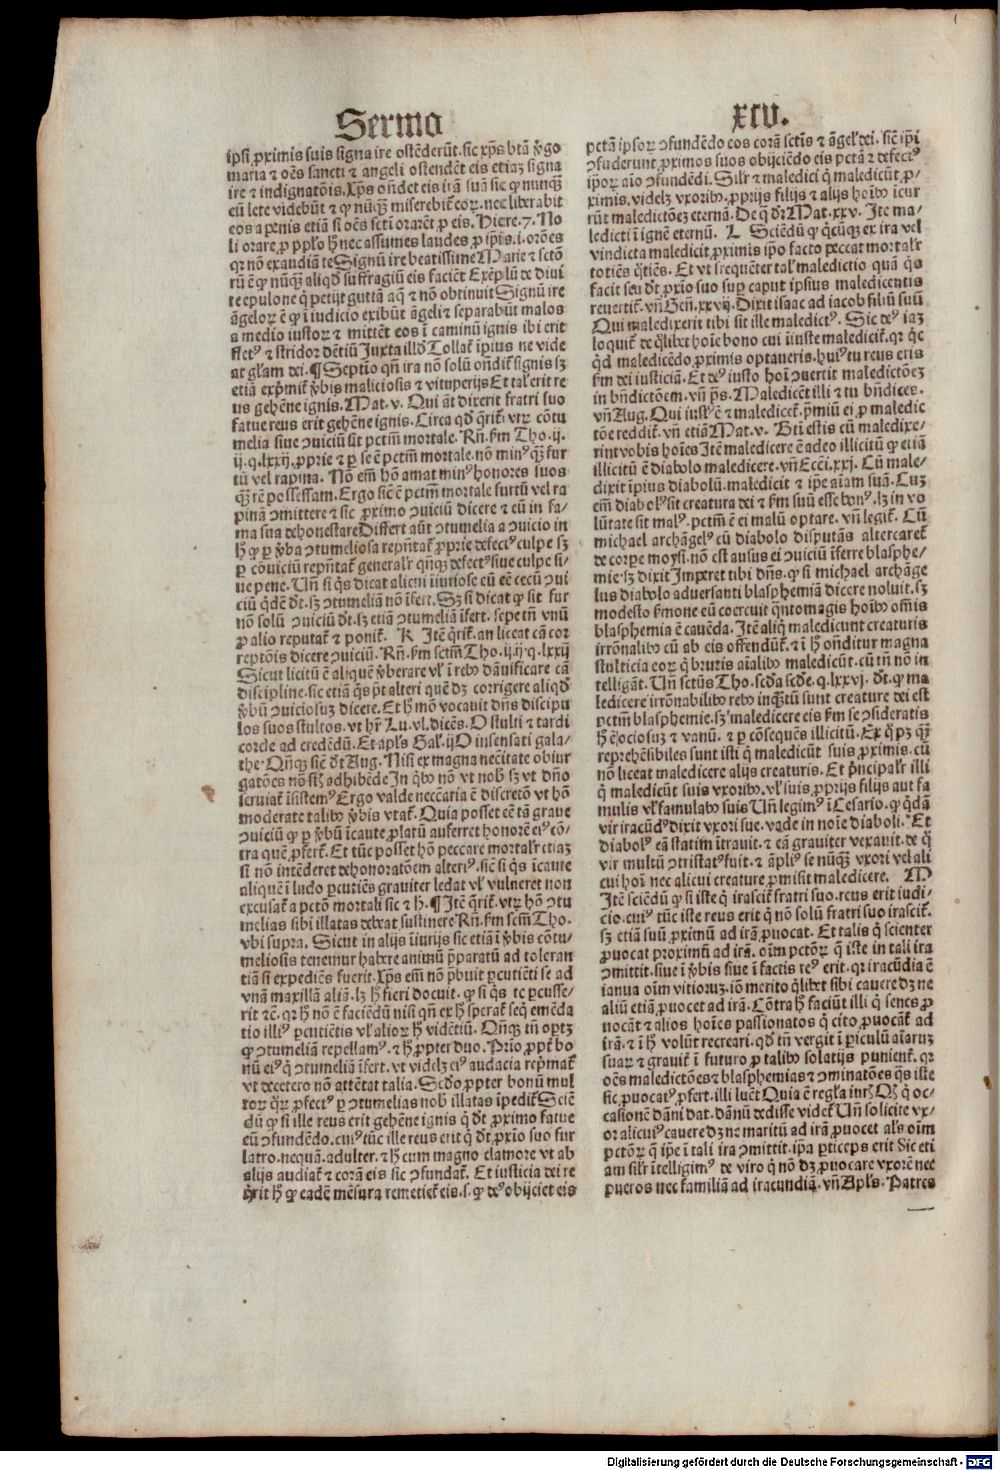 Sermo
xcv.
ipsi ꝓximis suis signa ire ostēderūt. sic xp̄s btā v̄go
maria ⁊ oēs sancti ⁊ angeli ostendēt eis etiaꝫ signa
ire ⁊ indignatōis. Xp̄s on̄det eis irā suā sic ꝙ nunqͣꝫ
eū lete videbūt ⁊ ꝙ nūqͣꝫ miserebit̄ eoꝝ. nec liberabit
eos a penis etiā si oēs sctī orarēt ꝓ eis. Hiere. 7. No
li orare ꝓ ppl̓o hͦ nec assumes laudes ꝓ ip̄is. i. orōes
qꝛ nō exaudiā te Signū ire beatissime Marie ⁊ sctō
rū ē ꝙ nūqͣꝫ aliqd̓ suffragiū eis faciēt Exēplū de divi
te epulone q̇ petijt guttā aq̄ ⁊ nō obtinuit Signū ire
āgeloꝝ ē ꝙ ī iudicio exibūt āgeli ⁊ separabūt malos
a medio iustoꝝ ⁊ mittēt eos ī caminū ignis ibi erit
flet⁹ ⁊ stridor dētiū Iuxta illd̓ Tollat̄ īpius ne vide
at gl̓am dei. ¶ Septīo qn̄ ira nō solū on̄dit̄ signis sꝫ
etiā exp̄mit̄ v̄bis maliciosis ⁊ vituperijs Et tal̓ erit re
us gehēne ignis. Mat. v. Qui āt dixerit fratri suo
fatue reus erit gehēne ignis. Circa qd̓ q̄rit̄. vtꝝ cōtu
melia siue ꝯuiciū sit pctm̄ mortale. Rn̄. ẜm Tho. ij.
ij. q. lxxij. ꝓprie ⁊ ꝑ se ē pctm̄ mortale. nō min⁹ qͣꝫ fur
tū vel rapina. Nō em̄ hō amat min⁹ honores suos
qͣꝫ rē possessam. Ergo sic̄ ē pctm̄ mortale furtū vel ra
pinā ꝯmittere ⁊ sic ꝓximo ꝯuiciū dicere ⁊ eū in fa-
ma sua dehonestare Differt aūt ꝯtumelia a ꝯuicio in
hͦ ꝙ ꝑ v̄ba ꝯtumeliosa repn̄tat̄ ꝓprie defect⁹ culpe sꝫ
ꝑ cōuiciū repn̄tat̄ generalr̓ qn̄qꝫ defect⁹ siue culpe si-
ue pene. Un̄ si q̇s dicat alicui īiuriose eū eē cecū ꝯui
ciū q̇dē d̄t. sꝫ ꝯtumeliā nō īfert. Sꝫ si dicat ꝙ sit fur
nō solū ꝯuiciū d̄t. sꝫ etiā ꝯtumeliā īfert. sepe tn̄ vnū
ꝓ alio reputat̄ ⁊ ponit̄. K Itē q̄rit̄. an liceat cā cor
reptōis dicere ꝯuiciū. Rn̄. ẜm sctm̄ Tho. ij. ij. q. lxxij
Sicut licitū ē aliquē v̄berare vl̓ ī rebꝰ dānificare cā
discipline. sic etiā q̇s pt̄ alteri quē dꝫ corrigere aliqd̓
v̄bū ꝯuiciosuꝫ dicere. Et hͦ mō vocauit dn̄s discipu
los suos stultos. vt hr̄ Lu. vl. dicēs. O stulti ⁊ tardi
corde ad credēdū. Et apl̓s Gal. iij O insensati gala-
the. Qn̄qꝫ sic̄ d̄t Aug. Nisi ex magna necītate obiur
gatōes nō st̄ adhibēde In q̇bꝰ nō vt nob̓ sꝫ vt dn̄o
seruiat̄ īsistem⁹ Ergo valde necc̄aria ē discretō vt hō
moderate talibꝰ v̄bis vtat̄. Quia posset eē tā graue
ꝯuiciū ꝙ ꝑ v̄bū īcaute ꝓlatū auferret honorē ei⁹ cō-
tra quē ꝓfert̄. Et tūc posset hō peccare mortalr̓ etiaꝫ
si nō intēderet dehonoratōem alteri⁹. sic̄ si q̇s īcaute
aliquē ī ludo ꝑcutiēs grauiter ledat vl̓ vulneret non
excusat̄ a pctō mortali sic ⁊ hͦ. ¶ Itē q̄rit̄. vtꝝ hō ꝯtu
melias sibi illatas debeat sustinere Rn̄. ẜm scm̄ Tho.
vbi supra. Sicut in alijs īiurijs sic etiā ī v̄bis cōtu-
meliosis tenemur habere animū p̄paratū ad toleran
tiā si expediēs fuerit. Xp̄s em̄ nō p̄buit ꝑcutiēti se ad
vnā maxillā aliā. lꝫ hͦ fieri docuit. ꝙ si q̇s te ꝑcusse-
rit ⁊c̄. qꝛ hͦ nō ē faciēdū nisi qn̄ ex hͦ sperat̄ seq̇ emēda
tio illi⁹ ꝑcutiētis vl̓ alioꝝ hͦ vidētiū. Qn̄qꝫ tn̄ optꝫ
ꝙ ꝯtumeliā repellam⁹. ⁊ hͦ ꝓpter duo. Prīo ꝓpt̄ bo
nū ei⁹ q̇ ꝯtumeliā īfert. vt videlꝫ ei⁹ audacia rep̄mat̄
vt decetero nō attētat talia. Sedo ꝓpter bonū mul
toꝝ q̄ꝝ ꝓfect⁹ ꝑ ꝯtumelias nob̓ illatas īpedit̄ Sciē
dū ꝙ si ille reus erit gehēne ignis q̇ d̄t ꝓximo fatue
eū ꝯfundēdo. cui⁹ tūc ille reus erit q̇ d̄t ꝓxīo suo fur
latro. nequā. adulter. ⁊ hͦ cum magno clamore vt ab
alijs audiat̄ ⁊ corā eis sic ꝯfundat̄. Et iusticia dei re
q̇rit hͦ ꝙ eadē mēsura remetiet̄ eis. s. ꝙ de⁹ obijciet eis
pctā ipsoꝝ ꝯfundēdo eos corā sctīs ⁊ āgel̓ dei. sic̄ ip̄i
ꝯfuderunt ꝓximos suos obijciēdo eis pctā ⁊ defect⁹
ip̄oꝝ aīo ꝯfundēdi. Silr̓ ⁊ maledici q̇ maledicūt ꝓ-
ximis. videlꝫ vxoribꝰ. ꝓprijs filijs ⁊ alijs hoībꝰ icur
rūt maledictōeꝫ eternā. De q̇ dr̄ Mat. xxv. Ite ma-
ledicti ī ignē eternū. L Sciēdū ꝙ q̇cūqꝫ ex ira vel
vindicta maledicit ꝓximis ip̄o facto peccat mortalr̓
totiēs q̄tiēs. Et vt frequēter tal̓ maledictio quā q̇s
facit seu d̄t ꝓxīo suo suꝑ caput ipsius maledicentis
reuertit̄. vn̄ Gen̄. xxvij. Dixit isaac ad iacob filiū suū
Qui maledixerit tibi sit ille maledict⁹. Sic de⁹ iaꝫ
loquit̄ de q̇libet hoīe bono cui īiuste maledicit̄. qꝛ q̇c
q̇d maledicēdo ꝓximis optaueris. hui⁹ tu reus eris
ẜm dei iusticiā. Et de⁹ iusto hoī ꝯuertit maledictōeꝫ
in bn̄dictōem. vn̄ p̄s. Maledicēt illi ⁊ tu bn̄dices.
vn̄ Aug. Qui iust⁹ ē ⁊ maledicet̄. p̄miū ei ꝓ maledic
tōe reddit̄. vn̄ etiā Mat. v. Bti estis cū maledixe-
rint vobis hoīes Itē maledicere ē adeo illicitū ꝙ etiā
illicitū ē diabolo maledicere. vn̄ Ecc̄i. xxj. Cū male-
dixit īpius diabolū. maledicit ⁊ ip̄e aīam suā. Cuꝫ
em̄ diabol⁹ sit creatura dei ⁊ ẜm suū esse bon⁹. lꝫ in vo
lūtate sit mal⁹. pctm̄ ē ei malū optare. vn̄ legit̄. Cū
michael archāgel⁹ cū diabolo disputās altercaret̄
de corpe moysi. nō est ausus ei ꝯuiciū īferre blasphe-
mie. sꝫ dixit Imperet tibi dn̄s. ꝙ si michael archāge
lus diabolo aduersanti blasphemiā dicere noluit. sꝫ
modesto ẜmone eū coercuit q̄ntomagis hoībꝰ om̄is
blasphemia ē cauēda. Itē aliq̇ maledicunt creaturis
irrōnalibꝰ cū ab eis offendūt̄. ⁊ ī hͦ on̄ditur magna
stulticia eoꝝ q̇ brutis aīalibꝰ maledicūt. cū tn̄ nō in
telligāt. Un̄ sctūs Tho. scd̓a scd̓e. q. lxxvj. d̄t. ꝙ ma
ledicere irrōnabilibꝰ rebꝰ inqͣꝫtū sunt creature dei est
pctm̄ blasphemie. sꝫ maledicere eis ẜm se ꝯsideratis
hͦ ē ociosuꝫ ⁊ vanū. ⁊ ꝑ cōsequēs illicitū. Ex q̇ pꝫ qͣꝫ
reprehēsibiles sunt isti q̇ maledicūt suis ꝓximis. cū
nō liceat maledicere alijs creaturis. Et p̄ncipalr̓ illi
q̇ maledicūt suis vxoribꝰ. vl̓ suis ꝓprijs filijs aut fa
mulis vl̓ famulabꝰ suis Un̄ legim⁹ ī Cesario. ꝙ q̇dā
vir iracūd⁹ dixit vxori sue. vade in noīe diaboli. Et
diabol⁹ eā statim ītrauit. ⁊ eā grauiter vexauit. de q̇
vir multū ꝯtristat⁹ fuit. ⁊ āpli⁹ se nūqͣꝫ vxori vel ali
cui hoī nec alicui creature ꝓmisit maledicere. M
Itē sciēdū ꝙ si iste q̇ irascit̄ fratri suo. reus erit iudi-
cio. cui⁹ tūc iste reus erit q̇ nō solū fratri suo irascit̄.
sꝫ etiā suū ꝓximū ad irā ꝓuocat. Et talis q̇ scienter
ꝓuocat proximū ad irā. oīm pctōꝝ q̇ iste in tali ira
ꝯmittit. siue ī v̄bis siue ī factis re⁹ erit. qꝛ iracūdia ē
ianua oīm vitioruꝫ. iō merito q̇libet sibi cauere dꝫ ne
aliū etiā ꝓuocet ad irā. Cōtra hͦ faciūt illi q̇ senes ꝓ
uocāt ⁊ alios hoīes passionatos q̇ cito ꝓuocāt̄ ad
irā. ⁊ ī hͦ volūt recreari. qd̓ tn̄ vergit ī ꝑiculū aīaruꝫ
suaꝝ ⁊ grauit̄ ī futuro ꝓ talibꝰ solatijs punient̄. qꝛ
oēs maledictōes ⁊ blasphemias ⁊ ꝯminatōes q̄s iste
sic ꝓuocat⁹ ꝓfert. illi luēt Quia ē regl̓a iur̓ Qꝫ q̇ oc-
casionē dāni dat. dānū dedisse videt̄ Un̄ solicite vx-
or alicui⁹ cauere dꝫ ne maritū ad irā ꝓuocet al̓s oīm
pctōꝝ q̄ ip̄e ī tali ira ꝯmittit. ip̄a ꝑticeps erit Sic eti
am silr̓ ītelligim⁹ de viro q̇ nō dꝫ ꝓuocare vxorē nec
pueros nec familiā ad iracundiā. vn̄ Apl̓s. Patres
Digitalisierung gefördert durch die Deutsche Forschungsgemeinschaft - DFG